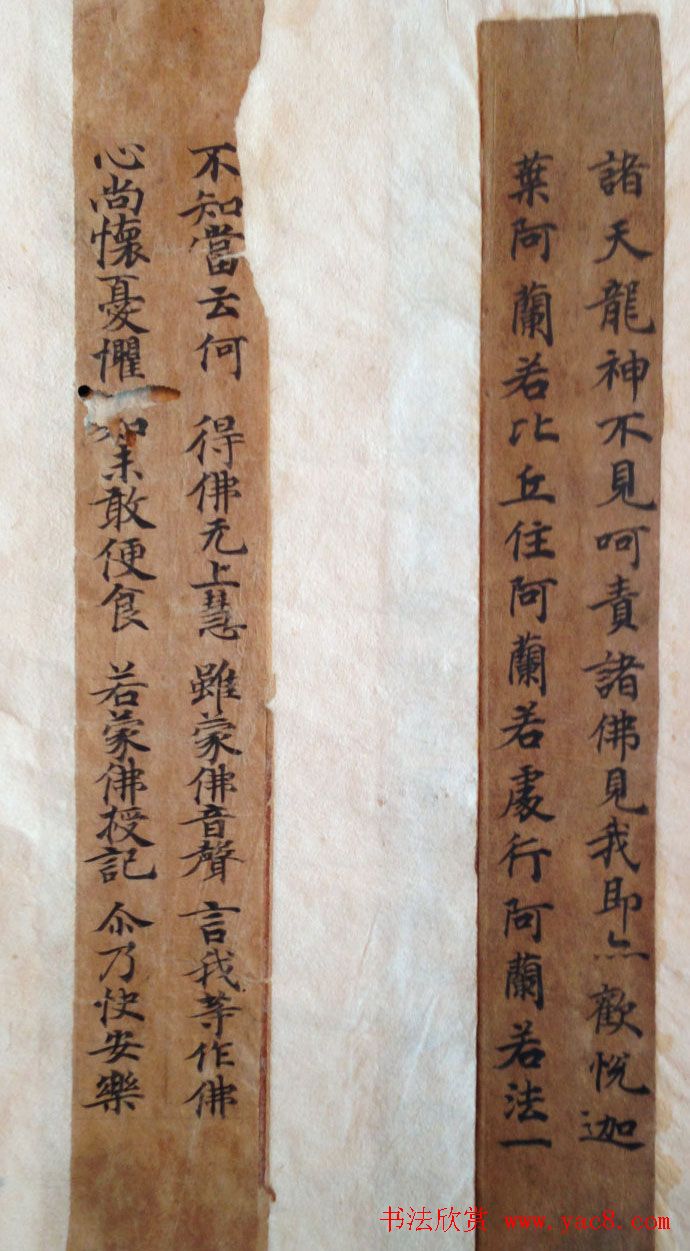 諸天龍神不見呵責諸佛見我即亦歡悅迦
葉阿蘭若比丘住阿蘭若處行阿蘭若法一
不知當云何 得佛无上慧 雖蒙佛音聲 言我等作佛
心尚懷憂懼 如未敢便食 若蒙佛授記 尒乃快安樂
书法欣赏 www.yac8.com